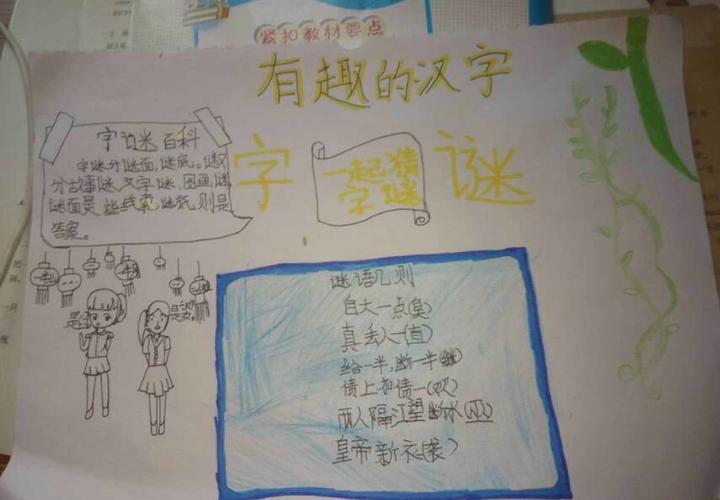 紧扣教材要点
有趣的汉字
字谜百科
字谜分谜面,谜底。谜又
分古诗谜,文字谜,图画谜
谜面是些线索,谜底则是
答案。
字 谜
一起猜
字谜
谜语几则
自大一点(臭)
真丢人一(直)
给一半,断一半(继)
债上和债一(欢)
两人隔江望断水(巫)
皇帝新衣(袭)